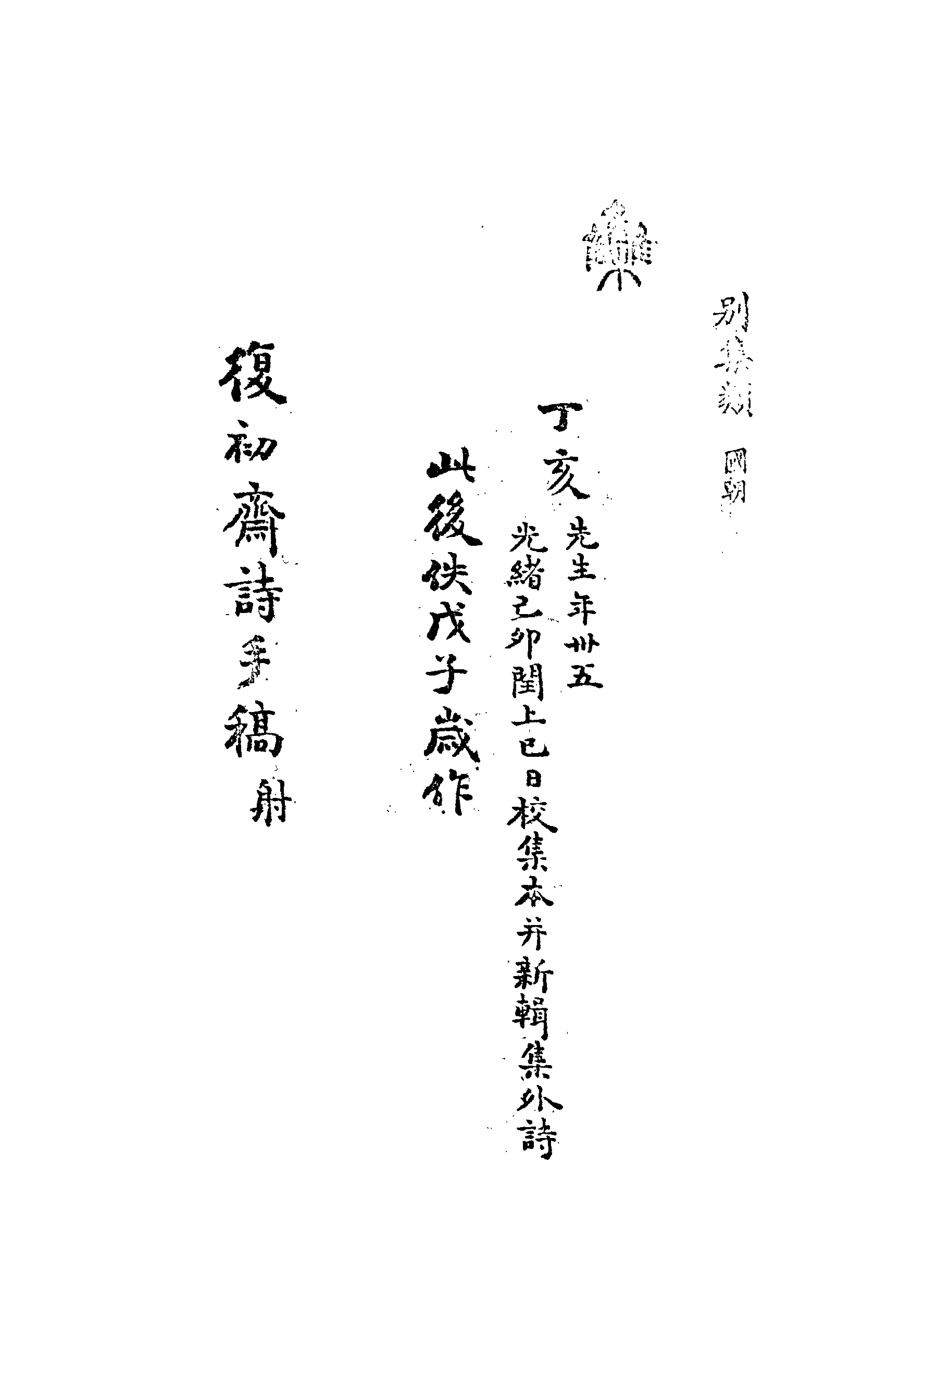 別集類 國朝
丁亥
先生年卅五
光緒己卯閏上巳日校集本并新輯集外詩
此後佚戊子歲作
復初齋詩手稿 射